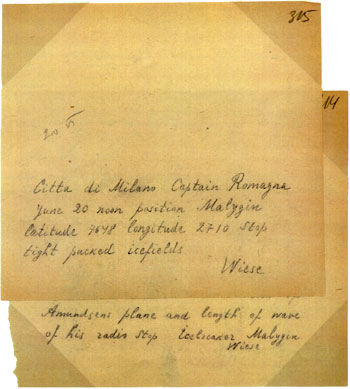 315
Citta di Milano Captain Romagna
June 20 noon position Malygin
latitude 7648 longitude 2710 Stop
tight packed icefields
Wiese
Amundsens plane and length of wave
of his radio stop Icebreaker Malygin
Wiese